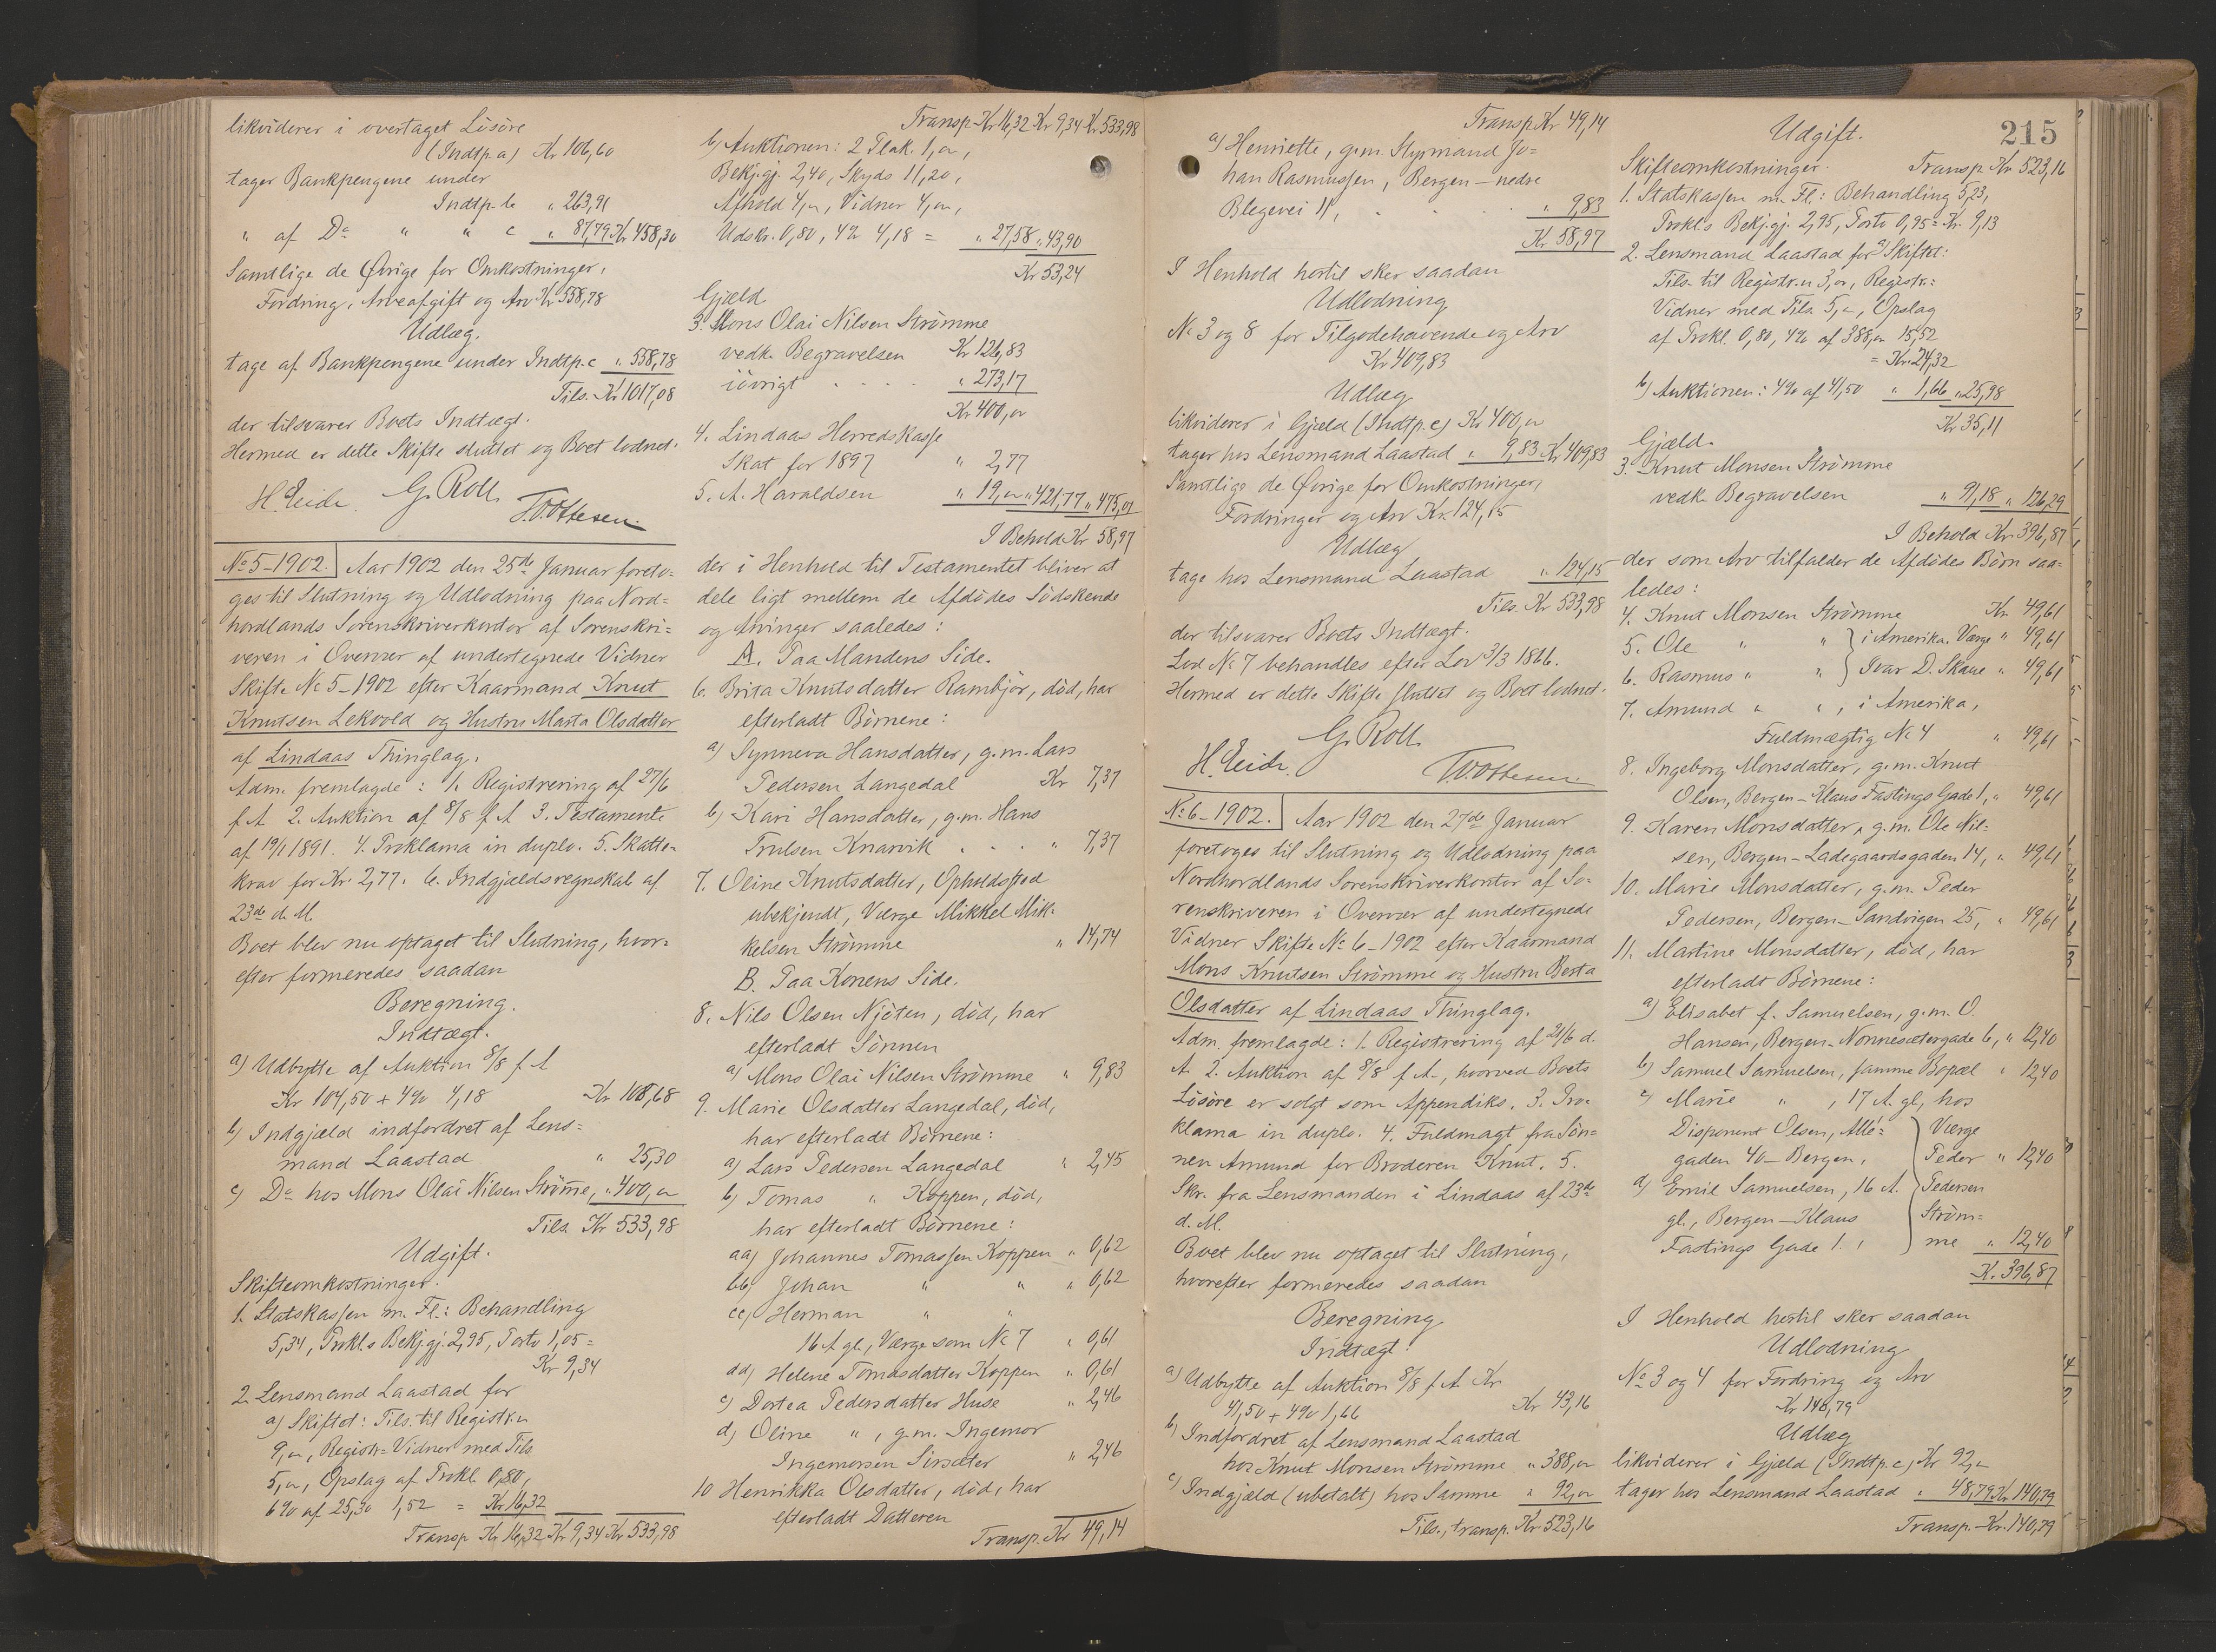 likviderer i overtaget Lösöre
(Indtp. a) Kr 106,60
tager Bankpengene under
Indtp. b " 263,91
" af Do " " c " 87,79 Kr 458,30
Samtlige de Øvrige for Omkostninger,
Fordring, Arveafgift og Arv Kr 558,78
Udlæg.
tage af Bankpengene under Indtp. c " 558,78
Tils. Kr 1017,08
der tilsvarer Boets Indtægt.
Hermed er dette Skifte sluttet og Boet lodnet.
H. Eide. G. Roll. T. Ottesen.
No 5–1902. Aar 1902 den 25de Januar foreto=
ges til Slutning og Udlodning paa Nord=
hordlands Sorenskriverkontor af Sorenskri=
veren i Overvær af undertegnede Vidner
Skifte No 5–1902 efter Kaarmand Knut
Knutsen Lekvold og Hustru Marta Olsdatter
af Lindaas Thinglag.
Adm. fremlagde: 1. Registrering af 27/6
f. A 2. Auktion af 8/8 f. A 3. Testamente
af 19/1 1891. 4. Proklama in duplo. 5. Skatte=
krav for Kr. 2,77. 6. Indgjældsregnskab af
23de d. M.
Boet blev nu optaget til Slutning, hvor=
efter formeredes saadan
Beregning.
Indtægt.
a) Udbytte af Auktion 8/8 f. A
Kr 104,50 + 4% 4,18 Kr 108,68
b) Indgjæld indfordret af Lens=
mand Laastad " 25,30
c) Do hos Mons Olai Nilsen Strömme, " 400,00
Tils. Kr 533,98
Udgift.
Skifteomkostninger.
1. Statskassen m. Fl.: Behandling
5,34, Prokl.s Bekj.gj. 2,95, Porto 1,05 =
Kr 9,34
2. Lensmand Laastad for
a) Skiftet: Tils. til Registr.n
9,00, Registr= Vidner med Tils
5,00, Opslag af Prokl. 0,80,
6% af 25,30 1,52 = Kr 16,32
Transp Kr 16,32 Kr 9,34 Kr 533,98
Transp. Kr 16,32 Kr 9,34 Kr 533,98
b) Auktionen: 2 Plak. 1,00,
Bekj.gj. 2,40, Skyds 11,20,
Afhold 4,00, Vidner 4,00,
Udskr. 0,80, 4% 4,18 = " 27,58 " 43,90
Kr 53,24
Gjæld.
3. Mons Olai Nilsen Strömme
vedk. Begravelsen Kr 126,83
iövrigt . . . . " 273,17
Kr 400,00
4. Lindaas Herredskasse
Skat for 1897 " 2,77
5. A. Haraldsen " 19,00 " 421,77 " 475,01
I Behold Kr 58,97
der i Henhold til Testamentet bliver at
dele ligt mellem de Afdödes Södskende
og Arvinger saaledes:
A. Paa Mandens Side.
6. Brita Knutsdatter Rambjör, död, har
efterladt Börnene:
a) Synneva Hansdatter, g. m. Lars
Pedersen Langedal Kr 7,37
b) Kari Hansdatter, g. m. Hans
Trulsen Knarvik . . . " 7,37
7. Oline Knutsdatter, Opholdssted
ubekjendt, Værge Mikkel Mik=
kelsen Strömme " 14,74
B. Paa Konens Side.
8. Nils Olsen Njöten, död, har
efterladt Sönnen
a) Mons Olai Nilsen Strömme " 9,83
9. Marie Olsdatter Langedal, död,
har efterladt Börnene:
a) Lars Pedersen Langedal " 2,45
b) Tomas " Koppen, död,
har efterladt Börnene:
aa) Johannes Tomassen Koppen " 0,62
bb) Johan " " " 0,62
cc) Herman " "
16 A. gl., Værge som No 7 " 0,61
dd) Helene Tomasdatter Koppen " 0,61
c) Dortea Pedersdatter Huse " 2,46
d) Oline " , g. m. Ingemor
Ingemorsen " 2,46
10 Henrikka Olsdatter, död, har
efterladt Datteren
Transp. Kr 49,14
Transp Kr 49,14
a) Henriette, g. m. Styrmand Jo=
han Rasmussen, Bergen – nedre
Blegevei 11, . . . " 9,83
Kr 58,97
I Henhold hertil sker saadan
Udlodning
No 3 og 8 for Tilgodehavende og Arv
Kr 409,83
Udlæg
likviderer i Gjæld (Indtp. c) Kr 400,00
tager hos Lensmand Laastad " 9,83 Kr 409,83
Samtlige de Øvrige for Omkostninger,
Fordringer og Arv Kr. 124,15
Udlæg
tage hos Lensmand Laastad " 124,15
Tils. Kr 533,98
der tilsvarer Boets Indtægt.
Lod No 7 behandles efter Lov 3/3 1866.
Hermed er dette Skifte sluttet og Boet lodnet.
G. Roll.
H. Eide. T. Ottesen.
No 6–1902. Aar 1902 den 27de Januar
foretoges til Slutning og Udlodning paa
Nordhordlands Sorenskriverkontor af So=
renskriveren i Overvær af undertegnede
Vidner Skifte No 6–1902 efter Kaarmand
Mons Knutsen Strömme og Hustru Berta
Olsdatter af Lindaas Thinglag.
Adm. fremlagde: 1. Registrering af 21/6 d.
A 2. Auktion af 8/8 f. A., hvorved Boets
Lösöre er solgt som Appendiks. 3. Pro=
klama in duplo. 4. Fuldmagt fra Sön=
nen Amund for Broderen Knut. 5.
Skr. fra Lensmanden i Lindaas af 23de
d. M.
Boet blev nu optaget til Slutning,
hvorefter formeredes saadan
Beregning
Indtægt.
a) Udbytte af Auktion 8/8 f. A. Kr
41,50 + 4% 1,66 Kr 43,16
b) Indfordret af Lensmand Laastad
hos Knut Monsen Strömme " 388,00
c) Indgjæld (ubetalt) hos Samme " 92,00
Tils., transp. Kr. 523,16
215
Udgift.
Skifteomkostninger. Transp. Kr 523,16
1. Statskassen m. Fl.: Behandling 5,23,
Prokl.s Bekj.gj. 2,95, Porto 0,95 = Kr. 9,13
2. Lensmand Laastad for a) Skiftet:
Tils. til Registr.n 3,00, Registr.=
Vidner med Tils. 5,00, Opslag
af Prokl. 0,80, 4% af 388,00 15,52
= Kr. 24,32
b) Auktionen: 4% af 41,50 " 1,66 " 25,98
Kr 35,11
Gjæld.
3. Knut Monsen Strömme
vedk. Begravelsen " 91,18 " 126,29
I Behold Kr. 396,87
der som Arv tilfalder de Afdödes Börn saa=
ledes:
4. Knut Monsen Strömme Kr 49,61
5. Ole " " } i Amerika, Værge " 49,61
6. Rasmus " " } Ivar D. Skaue " 49,61
7. Amund " ", i Amerika,
Fuldmægtig No 4 " 49,61
8. Ingeborg Monsdatter, g. m. Knut
Olsen, Bergen – Klaus Fastings Gade 1, " 49,61
9. Karen Monsdatter, g. m. Ole Nil=
sen, Bergen – Ladegaardsgaden 14, " 49,61
10. Marie Monsdatter, g. m. Peder
Pedersen, Bergen – Sandvigen 25, " 49,61
11. Martine Monsdatter, död, har
efterladt Börnene:
a) Elisabet f. Samuelsen, g. m. O.
Hansen, Bergen – Nonnesætergade 6, " 12,40
b) Samuel Samuelsen, samme Bopæl " 12,40
c) Marie " , 17 A. gl., hos
Disponent Olsen, Allé= } Værge
gaden 40 – Bergen, Peder " 12,40
d) Emil Samuelsen, 16 A. Pedersen
gl., Bergen – Klaus Ström=
Fastings Gade 1. , me " 12,40
K. 396,87
I Henhold hertil sker saadan
Udlodning
No 3 og 4 for Fordring og Arv
Kr 140,79
Udlæg
likviderer i Gjæld (Indtp. c) Kr 92,00
tager hos Lensmand Laastad " 48,79 Kr 140,79
Transp. Kr. 140,79